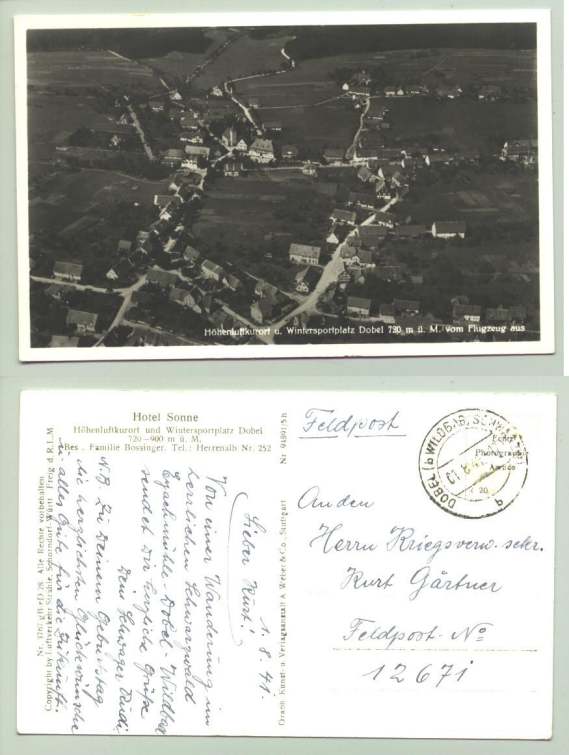 Höhenluftkurort u. Wintersportplatz Dobel 720 m ü. M. vom Flugzeug aus
Hotel Sonne
Höhenluftkurort und Wintersportplatz Dobel
720—900 m ü. M.
Bes. Familie Bossinger. Tel.: Herrenalb Nr. 252
1. 8. 41.
Lieber Kurt!
Von einer Wanderung im
herrlichen Schwarzwald
Eyachmühle-Dobel-Wildbad
sendet Dir herzliche Grüße
Dein Schwager Rudi.
N.B. Zu Deinem Geburtstag
die herzlichsten Glückwünsche
u. alles Gute für die Zukunft.
Copyright by Luftverkehr Strähle, Schorndorf Württ. Freig. d. R.L.M
Alle Rechte vorbehalten
Graph. Kunst- u. Verlagsanstalt A. Weber & Co., Stuttgart
Feldpost
DOBEL (b WILDBAD, SCHWARZW)
Echte
Photographie
An den
Herrn Kriegsverw.-sekr.
Kurt Gärtner
Feldpost-No
12671